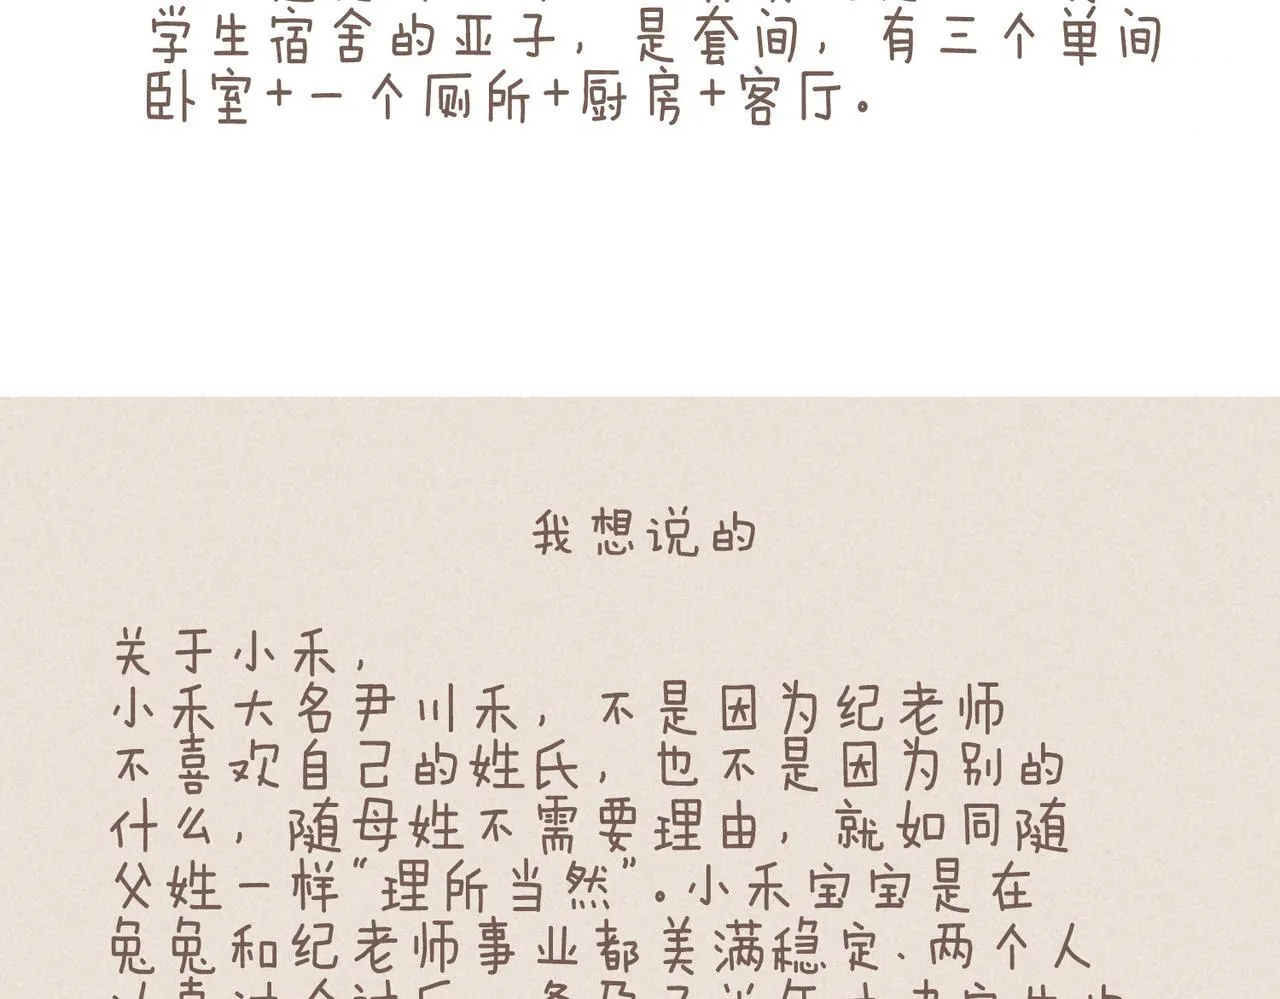 学生宿舍的亚子，是套间，有三个单间
卧室+一个厕所+厨房+客厅。
我想说的
关于小禾，
小禾大名尹川禾，不是因为纪老师
不喜欢自己的姓氏，也不是因为别的
什么，随母姓不需要理由，就如同随
父姓一样“理所当然”。小禾宝宝是在
兔兔和纪老师事业都美满稳定、两个人